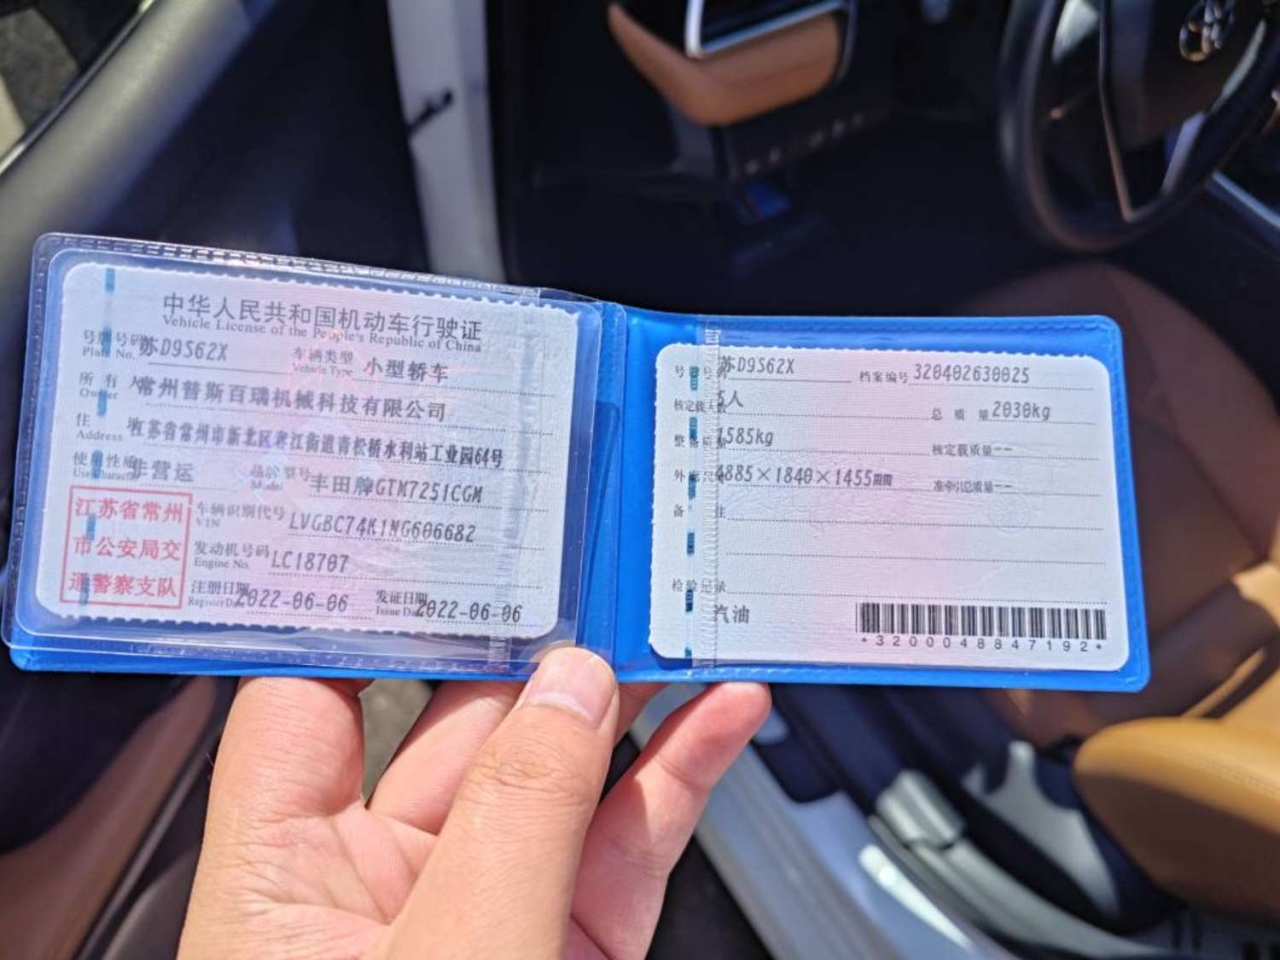 中华人民共和国机动车行驶证
Vehicle License of the People's Republic of China
号牌号码 苏D9S62X 车辆类型 小型轿车
Plate No. Vehicle Type
所有人 常州普斯百瑞机械科技有限公司
Owner
住址 江苏省常州市新北区 江街道青松桥水利站工业园64号
Address
使用性质 非营运 品牌型号 丰田牌GTM7251CGM
Use Character Model
江苏省常州
市公安局交
通警察支队
车辆识别代号 LVGBC74K1NG606682
VIN
发动机号码 LC18707
Engine No.
注册日期 2022-06-06 发证日期 2022-06-06
Register Date Issue Date
号牌号码 苏D9S62X 档案编号 320402630025
核定载人数 5人 总质量 2030kg
整备质量 1585kg 核定载质量 --
外廓尺寸 4885×1840×1455mm 准牵引总质量 --
备注
检验记录
汽油
*3200048847192*